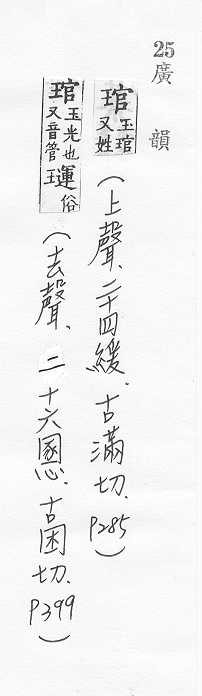 25 廣韻
琯 玉琯又姓 (上聲、二十四緩、古滿切、P285)
琯 玉光也又音管 俗 (去聲、二十六慁、古困切、P399)